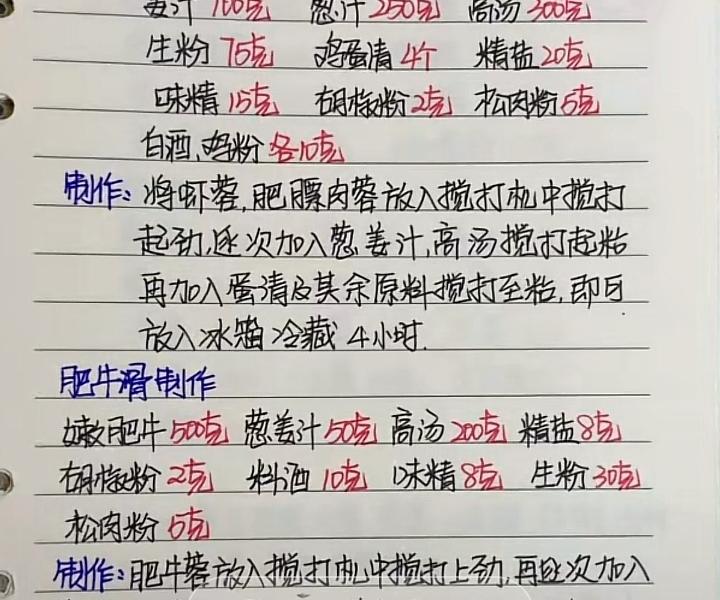 姜汁 100克 葱汁 250克 高汤 300克
生粉 75克 鸡蛋清 4个 精盐 20克
味精 15克 胡椒粉 2克 松肉粉 5克
白酒、鸡粉 各10克
制作: 将虾蓉,肥膘肉蓉放入搅打机中搅打
起劲,逐次加入葱姜汁,高汤搅打起粘
再加入蛋清及其余原料搅打至粘,即可
放入冰箱冷藏 4小时.
肥牛滑制作
嫩肥牛 500克 葱姜汁 50克 高汤 200克 精盐 8克
胡椒粉 2克 料酒 10克 味精 8克 生粉 30克
松肉粉 5克
制作: 肥牛蓉放入搅打机中搅打上劲,再逐次加入